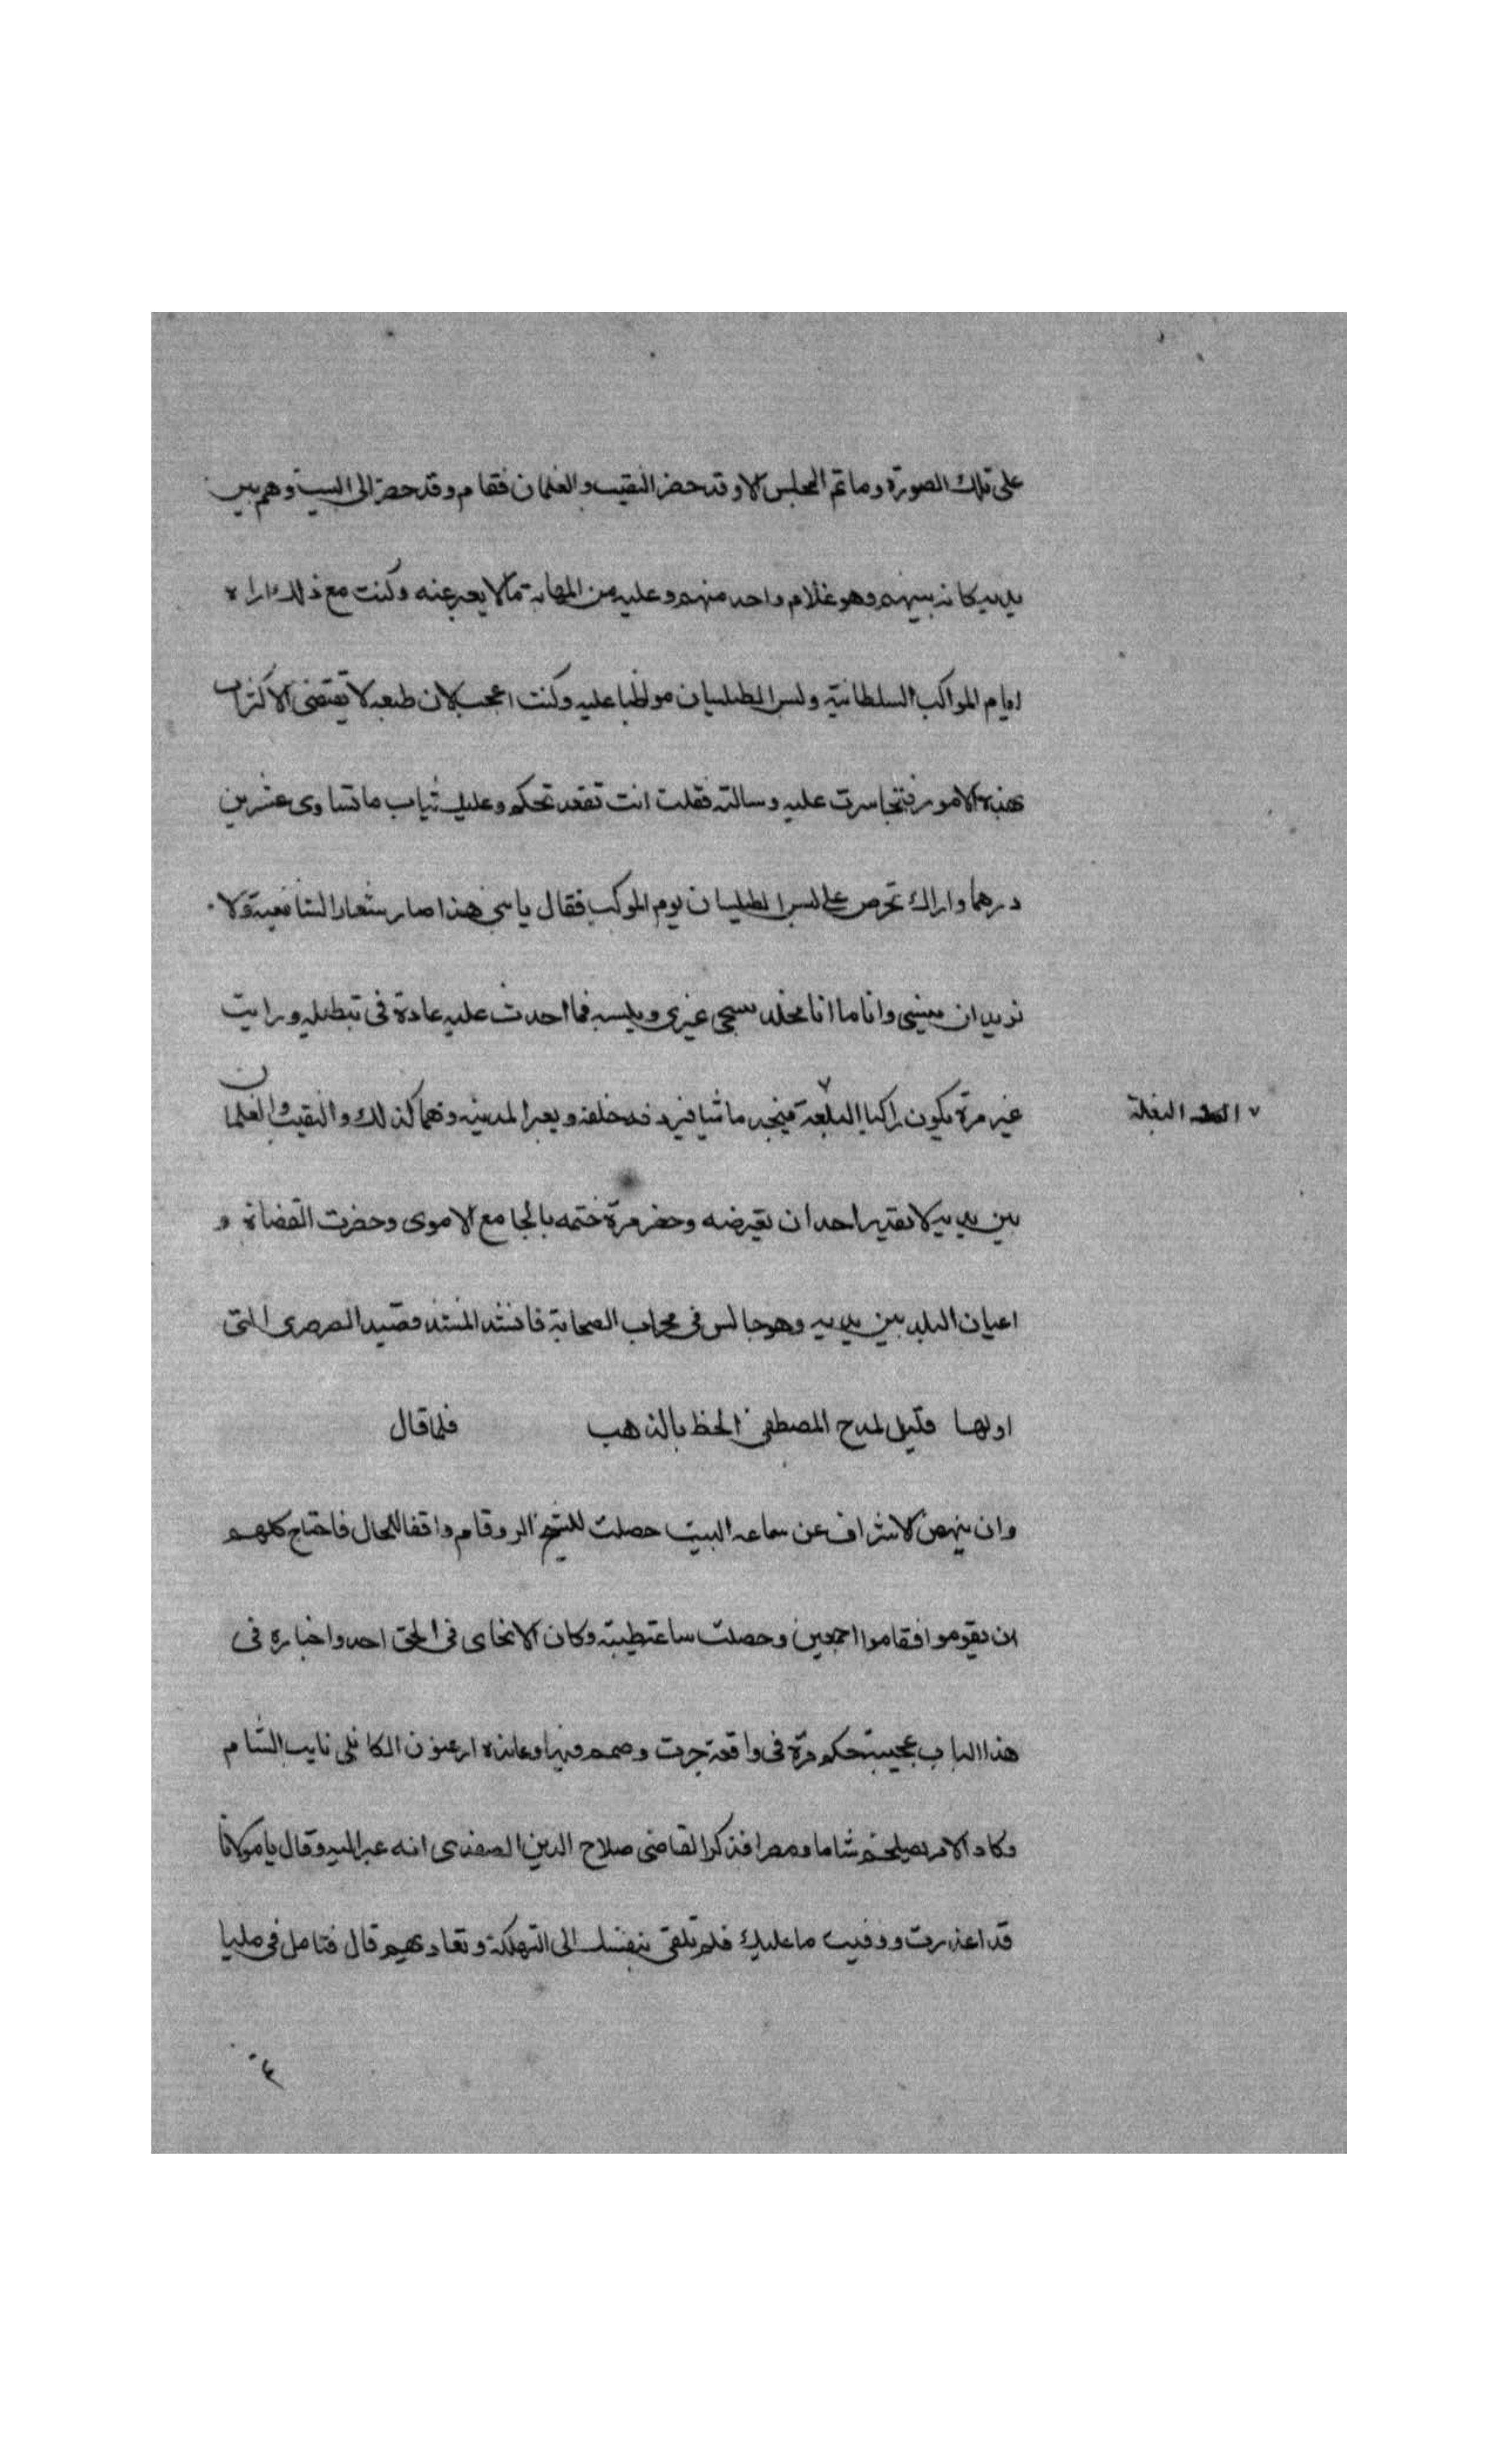 على تلك الصورة وما تم المجلس الا وقد حضر النقيب والغلمان فقام وقد حضر الى البيت وهم بين
يديه كانه بينهم وهو غلام واحد منهم وعليه من المهابة ما لا يعبر عنه وكنت مع ذلك اراه
ايام المواكب السلطانية ولبس الطيلسان مواظبا عليه وكنت اعجب لان طبعه لا يقتضى الاكتراث
بهذه الامور فتجاسرت عليه وسالته فقلت انت تقعد تحكم وعليك ثياب ما تساوى عشرين
درهما واراك تحرص على لبس الطيلسان يوم الموكب فقال يا بنى هذا صار شعار الشافعية ولا
نريد ان ينسى وانا ما انا مخلد سيجى غيرى ويلبسه فما احدث عليه عادة فى تبطيله ورايت
غير مرة يكون راكبا البلغة فيجد ماشيا فيردفه خلفه ويعبر المدينه وهما كذلك والنقيب والغلمان
٧ البغلة
بين يديه لا يقدر احد ان يعترضه وحضر مرة ختمه بالجامع الاموى وحضرت القضاة و
اعيان البلد بين يديه وهو جالس فى محراب الصحابة فانشد المنشد قصيد الصرصرى التى
اولها قليل لمدح المصطفى الخط بالذهب فلما قال
وان ينهض الاشراف عن سماعه البيت حصلت للشيخ وقام واقفا للحال فاحتاج كلهم
ان يقوموا فقاموا اجمعين وحصلت ساعة طيبة وكان لا يحابى فى الحق احد واخباره فى
هذا الباب عجيبة حكم مرة فى واقعة جرت وصمم فيها وعانده ارغون الكاملى نايب الشام
وكاد الامر شاما ومصرا فذكر القاضى صلاح الدين الصفدى انه عبر اليه وقال يا مولانا
قد اعذرت ووفيت ما عليك فلم تلقى بنفسك الى التهلكة وتعاديهم قال فتامل فى مليا